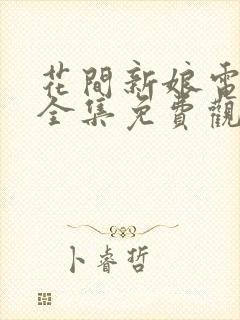 花間新娘電
全集免費觀
卜睿哲